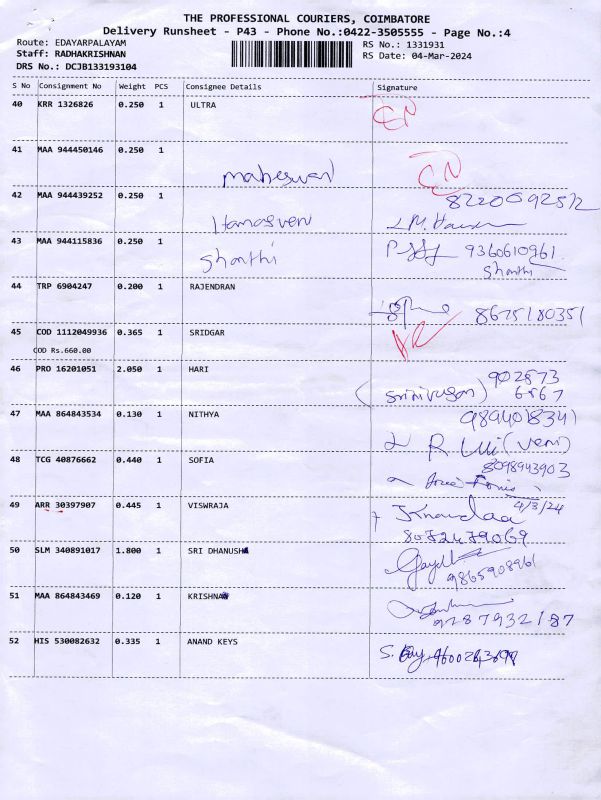 THE PROFESSIONAL COURIERS, COIMBATORE
Delivery Runsheet - P43 - Phone No.:0422-3505555 - Page No.:4
Route: EDAYARPALAYAM RS No.: 1331931
Staff: RADHAKRISHNAN RS Date: 04-Mar-2024
DRS No.: DCJB133193104
S No Consignment No Weight PCS Consignee Details Signature
40 KRR 1326826 0.250 1 ULTRA CN
41 MAA 944450146 0.250 1 CN
maheswari
42 MAA 944439252 0.250 1
Hamasveni
43 MAA 944115836 0.250 1 9360610961
Shanthi Shanthi
44 TRP 6904247 0.200 1 RAJENDRAN
8675180351
45 COD 1112049936 0.365 1 SRIDGAR
COD Rs.660.00
46 PRO 16201051 2.050 1 HARI 902873
(Srinivasan) 6867
47 MAA 864843534 0.130 1 NITHYA 9894018341
(veni)
48 TCG 40876662 0.440 1 SOFIA 8098943903
49 ARR 30397907 0.445 1 VISWRAJA 4/3/24
8072479069
50 SLM 340891017 1.800 1 SRI DHANUSH
9865908961
51 MAA 864843469 0.120 1 KRISHNA
9787932187
52 HIS 530082632 0.335 1 ANAND KEYS